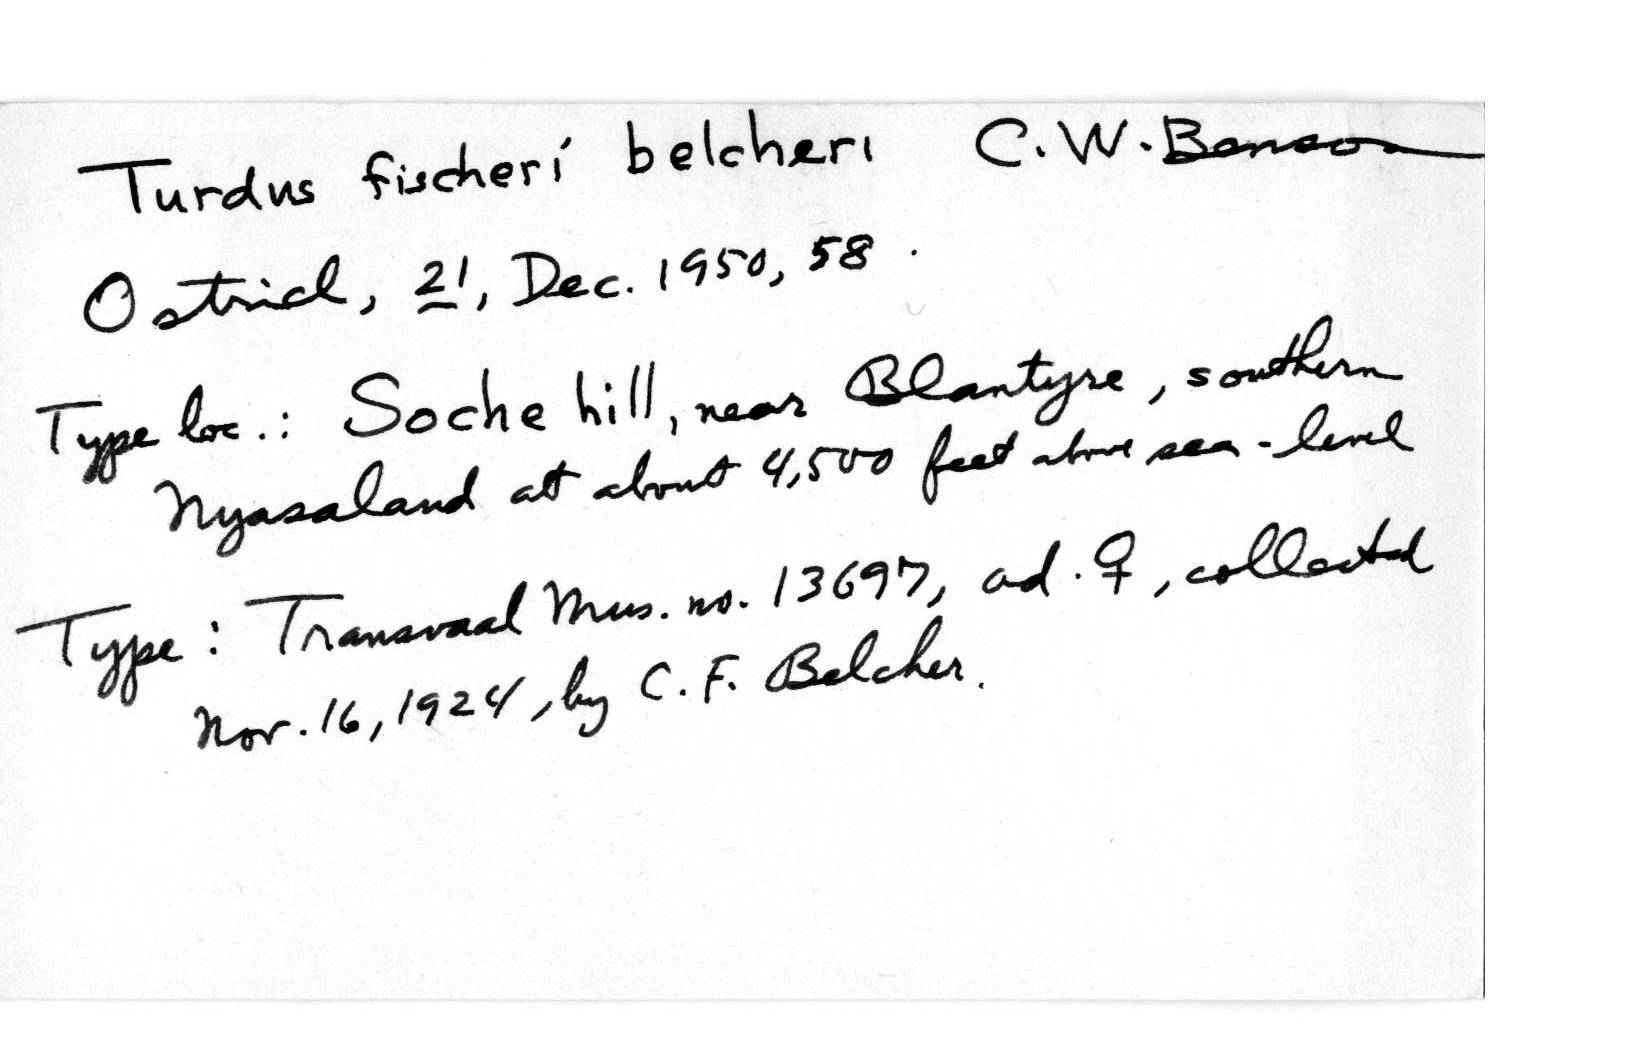 Turdus fischeri belcheri C. W. Benson
Ostrich, 21, Dec. 1950, 58.
Type loc.: Soche hill, near Blantyre, southern
Nyasaland at about 4,500 feet above sea-level
Type: Transvaal Mus. no. 13697, ad. ♀, collected
Nov. 16, 1924, by C. F. Belcher.